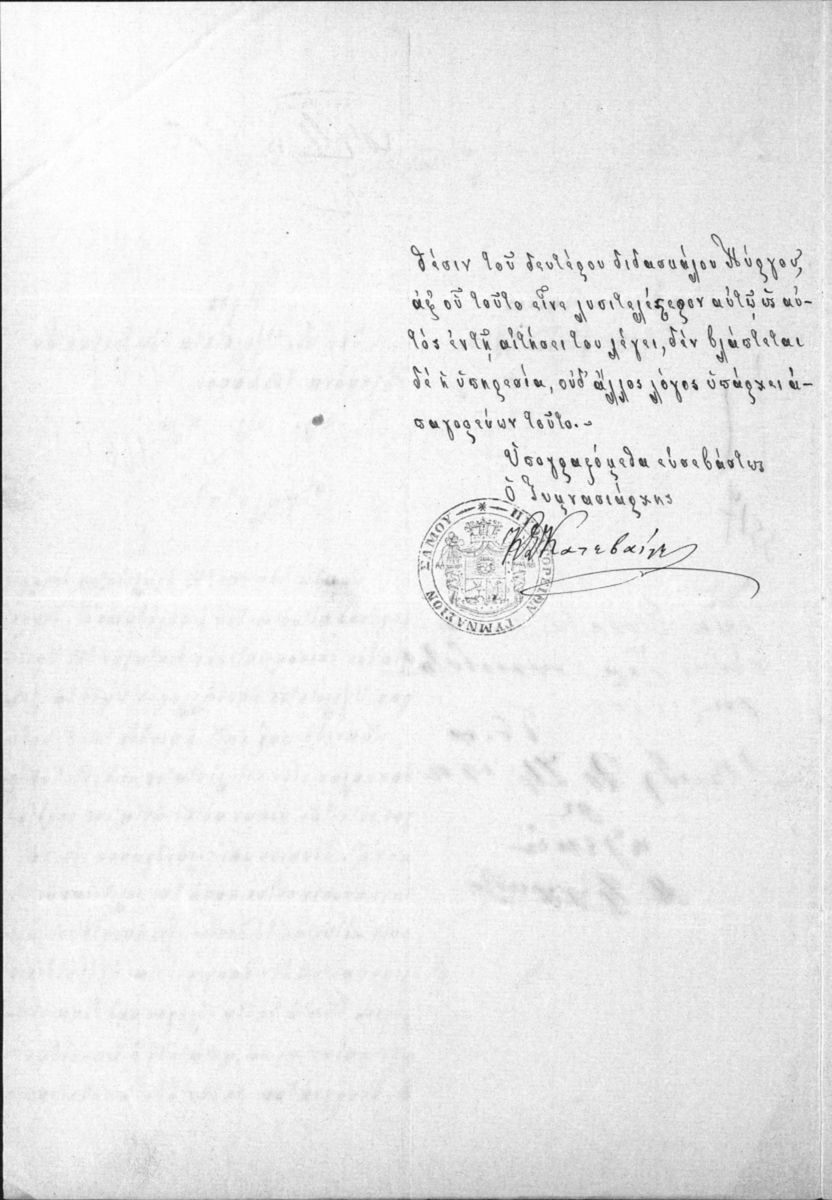 θέσιν τοῦ δευτέρου διδασκάλου Πύργου,
ἀφ' οὗ τοῦτο εἶνε λυσιτελέστερον αὐτῷ ὡς αὐ-
τὸς ἐν τῇ αἰτήσει του λέγει, δὲν βλάπτεται
δὲ ἡ ὑπηρεσία, οὐδ' ἄλλος λόγος ὑπάρχει ἀ-
παγορεύων τοῦτο.-
Ὑπογραφόμεθα εὐσεβάστως
Ὁ Γυμνασιάρχης
ΓΥΜΝΑΣΙΟΝ ΣΑΜΟΥ